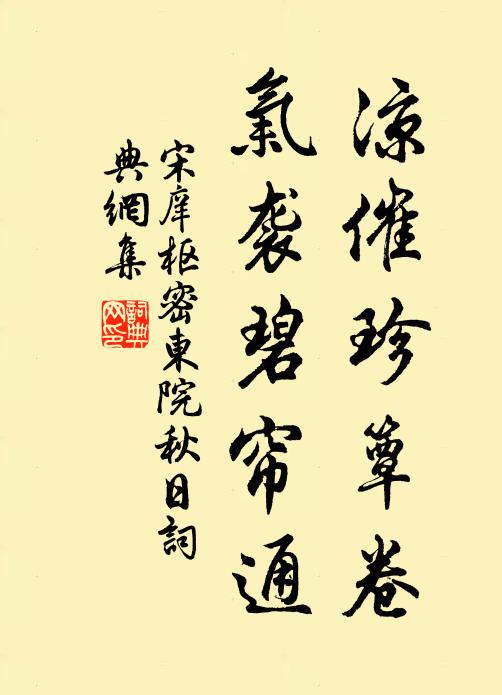 涼催珍簟卷
氣袭碧帘通
宋庠枢密東院秋日詞
典網集
詞典网印